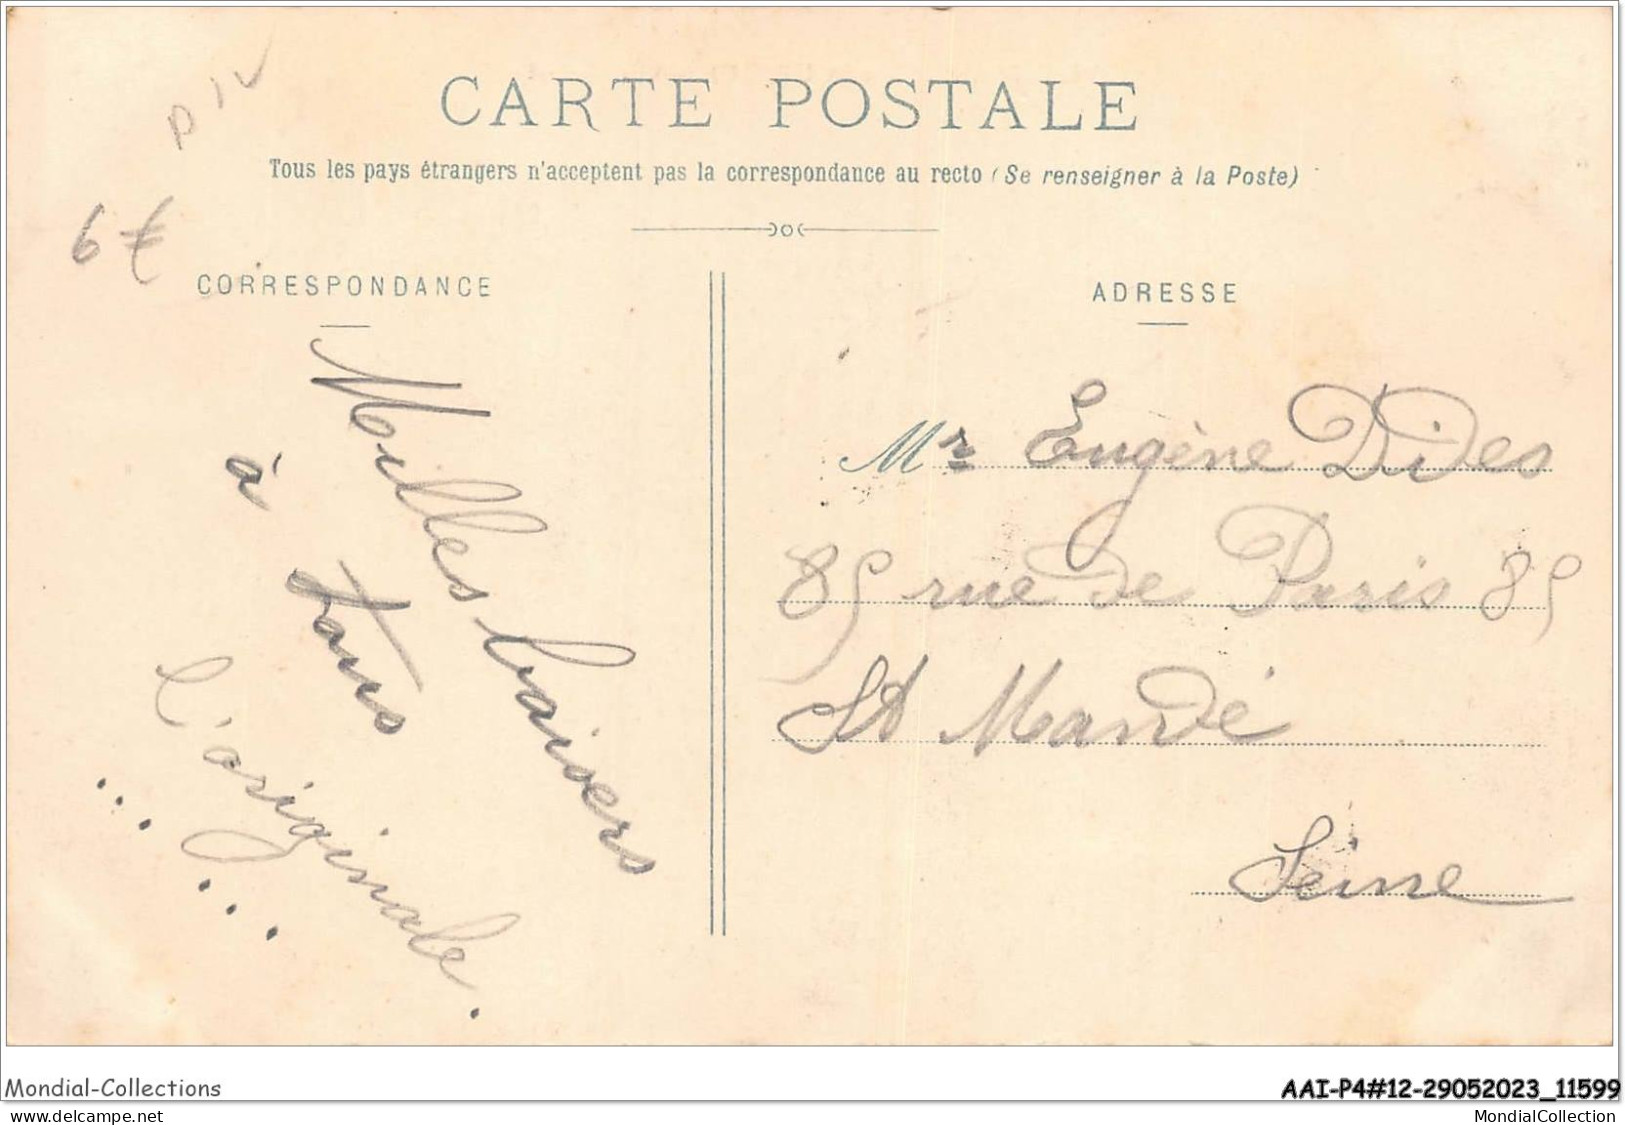 DIV
CARTE POSTALE
Tous les pays étrangers n'acceptent pas la correspondance au recto (Se renseigner à la Poste)
6 €
CORRESPONDANCE
Milles baisers
à
tous
L'originale.
ADRESSE
Mr Eugène Dides
85 rue de Paris 85
St Mandé
Seine
Mondial-Collections
AAI-P4#12-29052023_11599
www.delcampe.net
MondialCollection